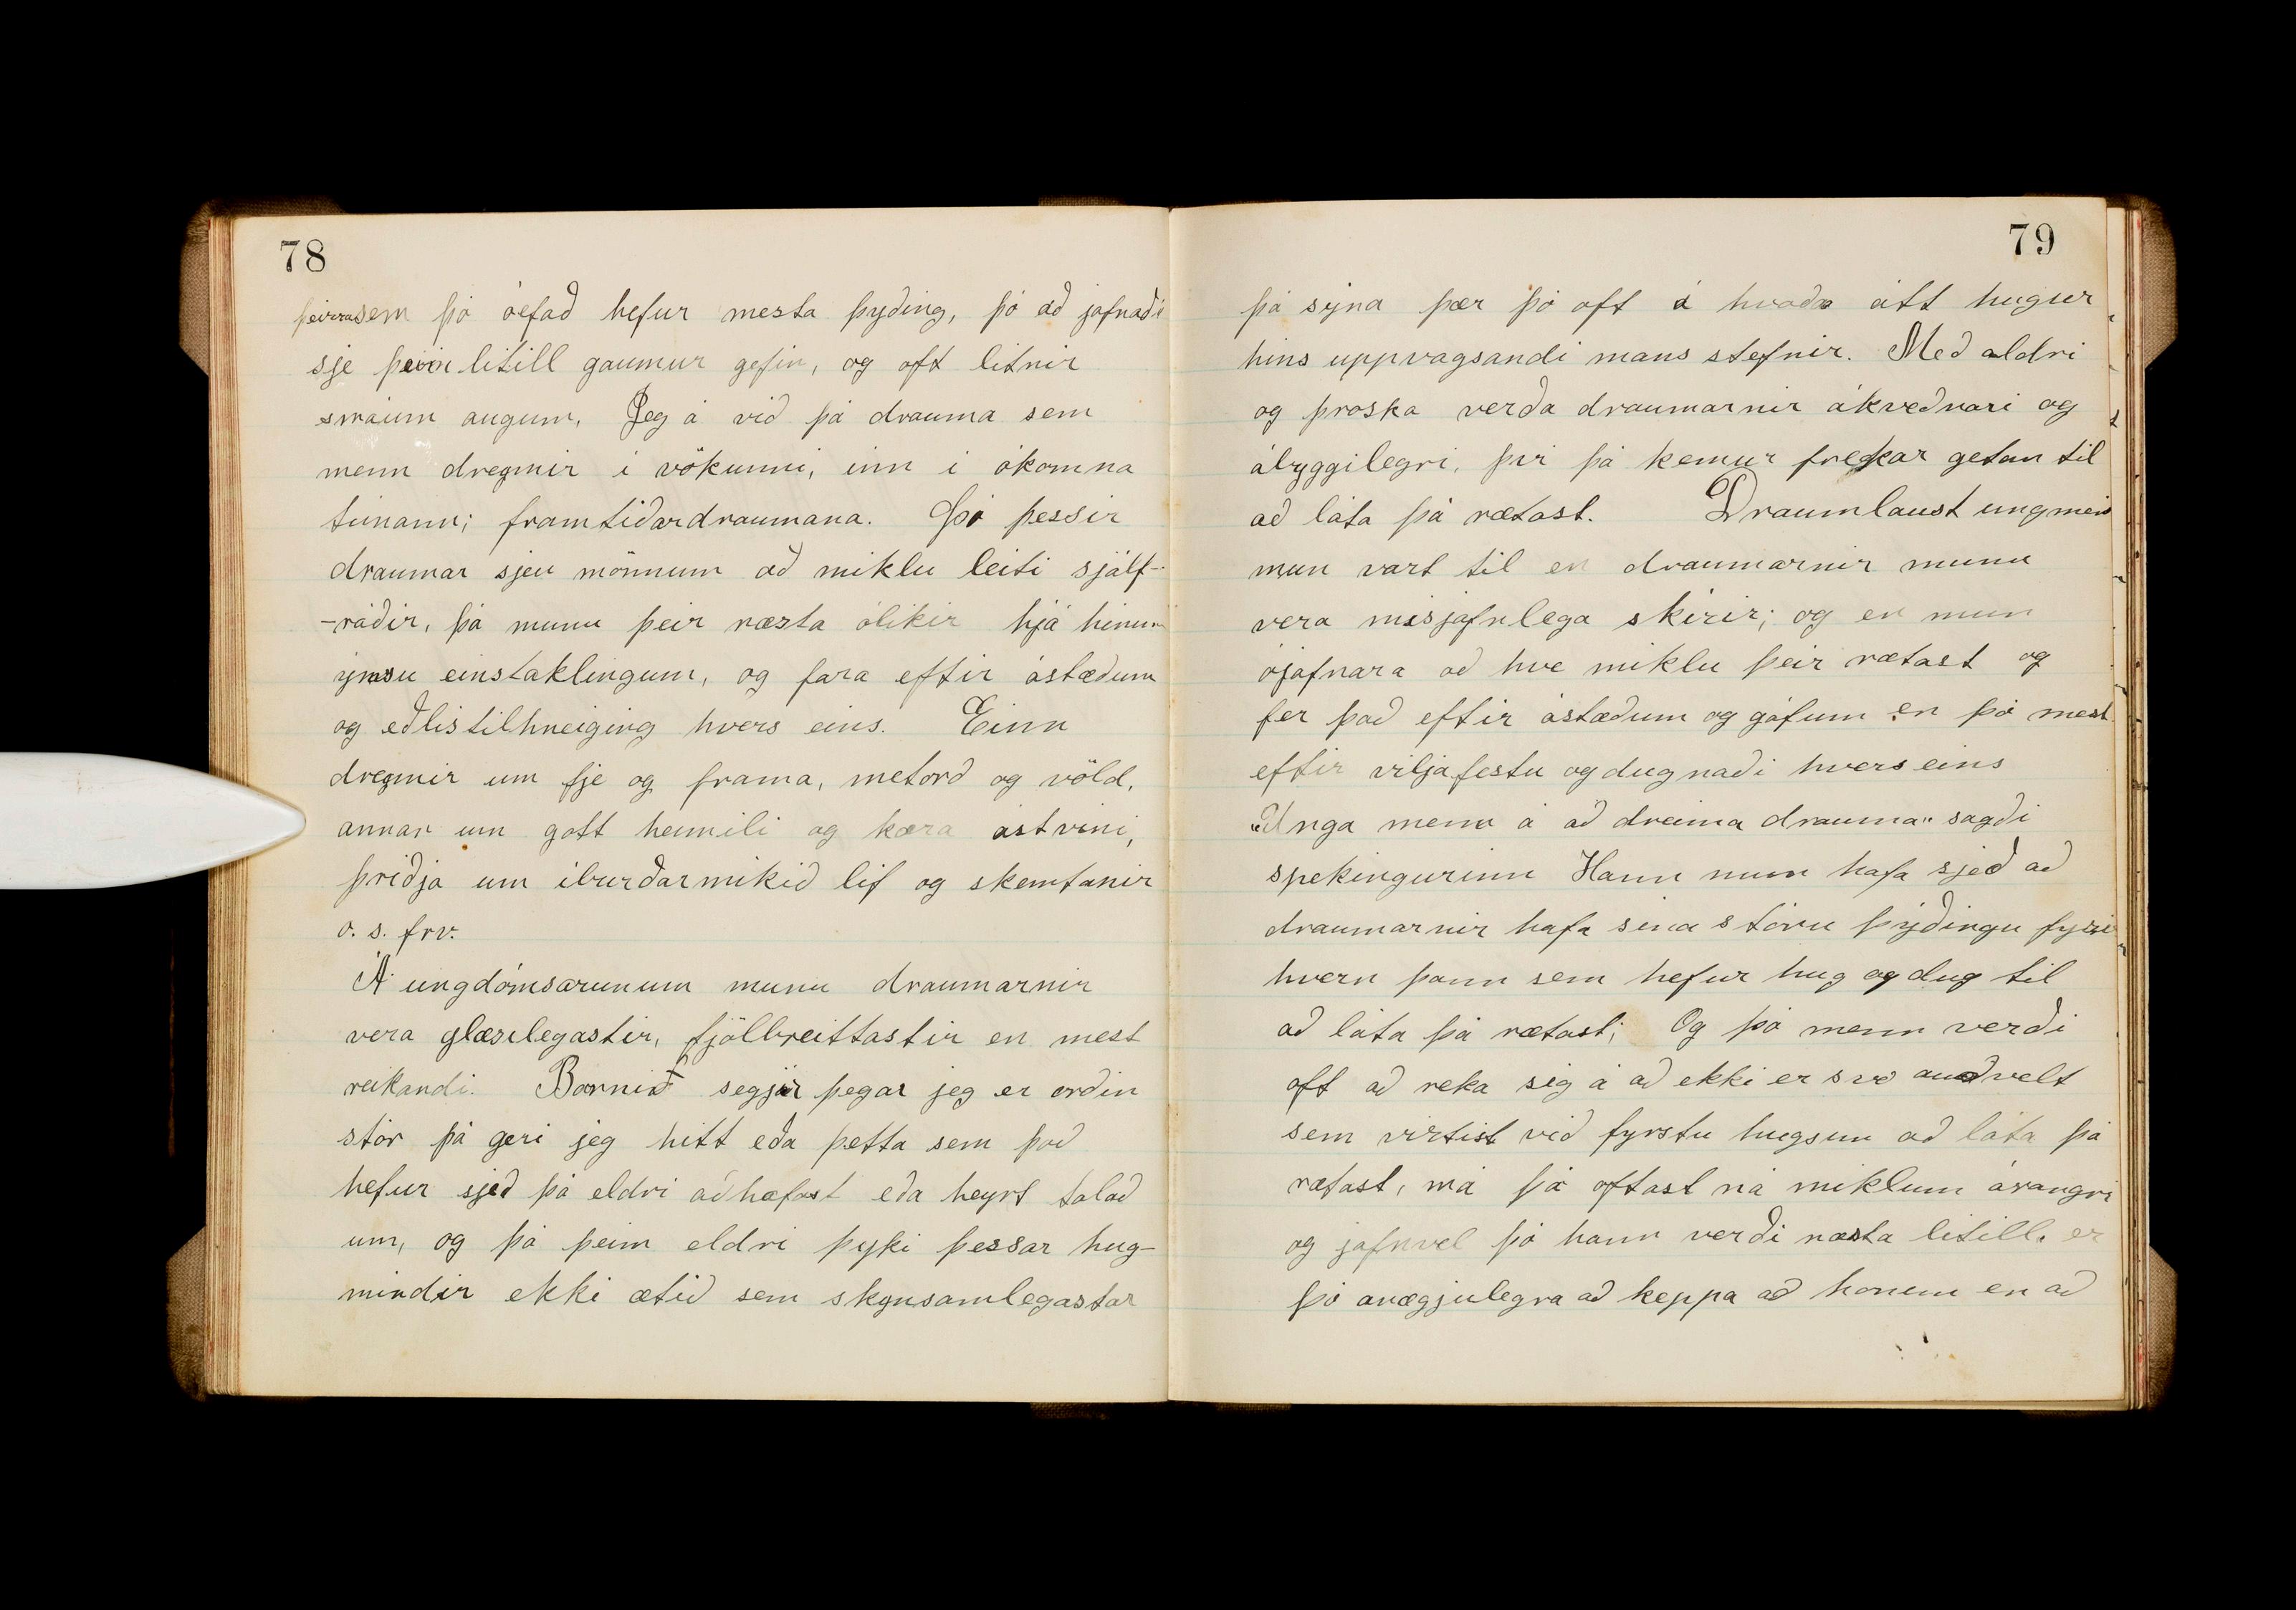 78
þeirra sem þó óefað hefur mesta þyðing, þó að jafnaði
sje þeim litill gaumur gefin, og oft litnir
smáum augum. Jeg á við þá drauma sem
menn dreymir i vökunni, inn i ókomna
timann; framtiðardraumana. Þó þessir
draumar sjeu mönnum að miklu leiti sjálf-
-ráðir, þá munu þeir næsta ólikir hjá hinum
ýmsu einstaklingum, og fara eftir ástæðum
og eðlistilhneiging hvers eins. Einn
dreymir um fje og frama, metorð og völd,
annan um gott heimili og kæra ástvini,
þriðja um iburðarmikið lif og skemtanir
o. s. frv.
Á ungdómsárunum munu draumarnir
vera glæsilegastir, fjölbreittastir en mest
reikandi. Barnið segjir þegar jeg er orðin
stór þá geri jeg hitt eða þetta sem það
hefur sjeð þá eldri aðhæfast eða heyrt talað
um, og þá þeim eldri þyki þessar hug-
mindir ekki ætið sem skynsamlegastar
79
þá sýna þær þó oft á hvaða átt hugur
hins uppvagsandi mans stefnir. Með aldri
og þroska verða draumarnir ákveðnari og
ábyggilegri, þvi þá kemur frekar getan til
að láta þá rætast. Draumlaust ungmenn
mun vart til en draumarnir munu
vera misjafnlega skirir; og en mun
ójafnara að hve miklu þeir rætast og
fer það eftir ástæðum og gáfum en þó mest
eftir viljafestu og dugnaði hvers eins
„Unga menn á að dreima drauma" sagði
spekingurinn Hann mun hafa sjeð að
draumarnir hafa sina stóru þýðingu fyrir
hvern þann sem hefur hug og dug til
að láta þá rætast; Og þó menn verði
oft að reka sig á að ekki er svo auðvelt
sem virtist við fyrstu hugsun að láta þá
rætast, má þó oftast ná miklum árangri
og jafnvel þó hann verði næsta litill, er
þó anægjulegra að keppa að honum en að